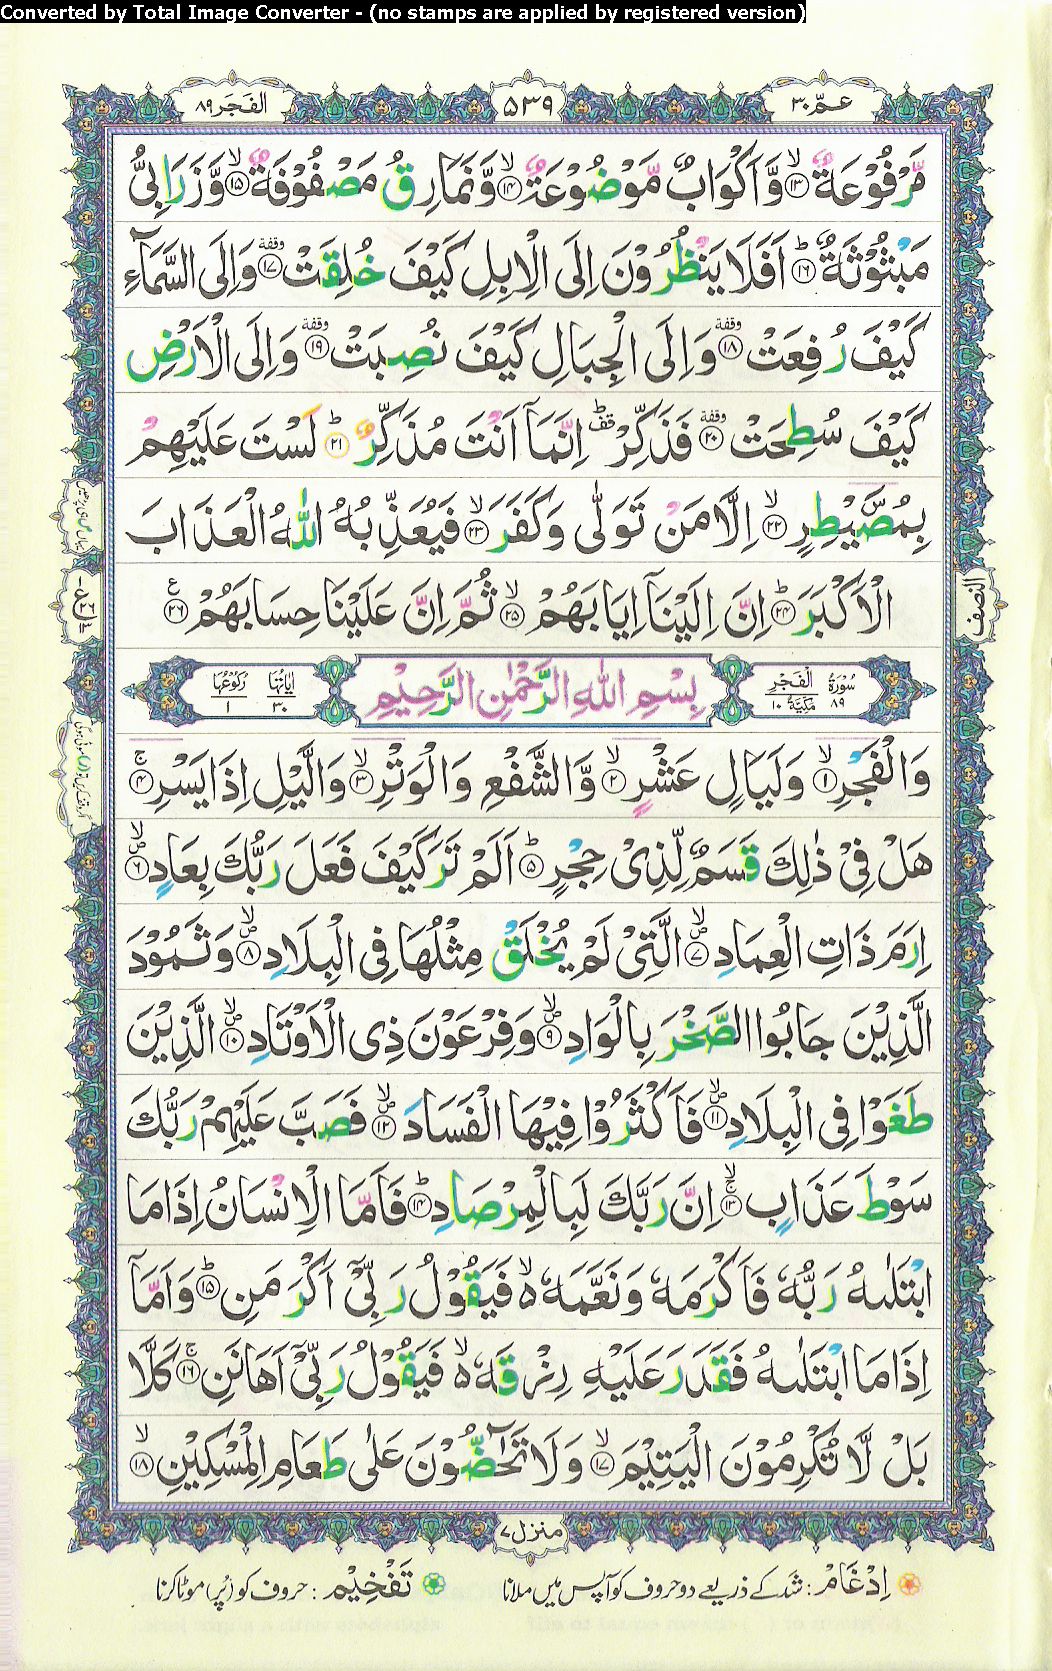 Converted by Total Image Converter - (no stamps are applied by registered version)
عمّ ٣٠
۵۳۹
الفَجر ۸۹
مَّرْفُوْعَةٌ ۙ‏﴿۱۳﴾ وَّاَكْوَابٌ مَّوْضُوْعَةٌ ۙ‏﴿۱۴﴾ وَّنَمَارِقُ مَصْفُوْفَةٌ ۙ‏﴿۱۵﴾ وَّزَرَابِىُّ
مَبْثُوْثَةٌ ؕ‏﴿۱۶﴾ اَفَلَا يَنْظُرُوْنَ اِلَى الْاِبِلِ كَيْفَ خُلِقَتْ وقفة ﴿۱۷﴾ وَاِلَى السَّمَآءِ
كَيْفَ رُفِعَتْ وقفة ﴿۱۸﴾ وَاِلَى الْجِبَالِ كَيْفَ نُصِبَتْ وقفة ﴿۱۹﴾ وَاِلَى الْاَرْضِ
كَيْفَ سُطِحَتْ وقفة ﴿۲۰﴾ فَذَكِّرْ قف اِنَّمَآ اَنْتَ مُذَكِّرٌ ؕ‏﴿۲۱﴾ لَسْتَ عَلَيْهِمْ
بِمُصَۜيْطِرٍ ۙ‏﴿۲۲﴾ اِلَّا مَنْ تَوَلّٰى وَكَفَرَ ۙ‏﴿۲۳﴾ فَيُعَذِّبُهُ اللّٰهُ الْعَذَابَ
الْاَكْبَرَ ؕ‏﴿۲۴﴾ اِنَّ اِلَيْنَآ اِيَابَهُمْ ۙ‏﴿۲۵﴾ ثُمَّ اِنَّ عَلَيْنَا حِسَابَهُمْ ع ﴿۲۶﴾
النصف
سُوْرَةُ الْفَجْرِ ۸۹ مَكِّيَّةٌ ۱۰ بِسْمِ اللّٰهِ الرَّحْمٰنِ الرَّحِيْمِ اٰيَاتُهَا ۳۰ رُكُوْعُهَا ۱
وَالْفَجْرِ ۙ‏﴿۱﴾ وَلَيَالٍ عَشْرٍ ۙ‏﴿۲﴾ وَّالشَّفْعِ وَالْوَتْرِ ۙ‏﴿۳﴾ وَالَّيْلِ اِذَا يَسْرِ ۚ‏﴿۴﴾
هَلْ فِىْ ذٰلِكَ قَسَمٌ لِّذِىْ حِجْرٍ ؕ‏﴿۵﴾ اَلَمْ تَرَ كَيْفَ فَعَلَ رَبُّكَ بِعَادٍ ۙ‏﴿۶﴾
اِرَمَ ذَاتِ الْعِمَادِ ۙ‏﴿۷﴾ الَّتِىْ لَمْ يُخْلَقْ مِثْلُهَا فِى الْبِلَادِ ۙ‏﴿۸﴾ وَثَمُوْدَ
الَّذِيْنَ جَابُوا الصَّخْرَ بِالْوَادِ ۙ‏﴿۹﴾ وَفِرْعَوْنَ ذِى الْاَوْتَادِ ۙ‏﴿۱۰﴾ الَّذِيْنَ
طَغَوْا فِى الْبِلَادِ ۙ‏﴿۱۱﴾ فَاَكْثَرُوْا فِيْهَا الْفَسَادَ ۙ‏﴿۱۲﴾ فَصَبَّ عَلَيْهِمْ رَبُّكَ
سَوْطَ عَذَابٍ ۚۙ‏﴿۱۳﴾ اِنَّ رَبَّكَ لَبِالْمِرْصَادِ ؕ‏﴿۱۴﴾ فَاَمَّا الْاِنْسَانُ اِذَا مَا
ابْتَلٰىهُ رَبُّهٗ فَاَكْرَمَهٗ وَنَعَّمَهٗ ۙ فَيَقُوْلُ رَبِّىْٓ اَكْرَمَنِ ؕ‏﴿۱۵﴾ وَاَمَّآ
اِذَا مَا ابْتَلٰىهُ فَقَدَرَ عَلَيْهِ رِزْقَهٗ ۙ فَيَقُوْلُ رَبِّىْٓ اَهَانَنِ ۚ‏﴿۱۶﴾ كَلَّا
بَلْ لَّا تُكْرِمُوْنَ الْيَتِيْمَ ۙ‏﴿۱۷﴾ وَلَا تَحٰٓضُّوْنَ عَلٰى طَعَامِ الْمِسْكِيْنِ ۙ‏﴿۱۸﴾
منزل ۷
اِدْغَامْ : شَد کے ذریعے دو حروف کو آپس میں ملانا تَفْخِیْم : حروف کو (پُر) موٹا کرنا